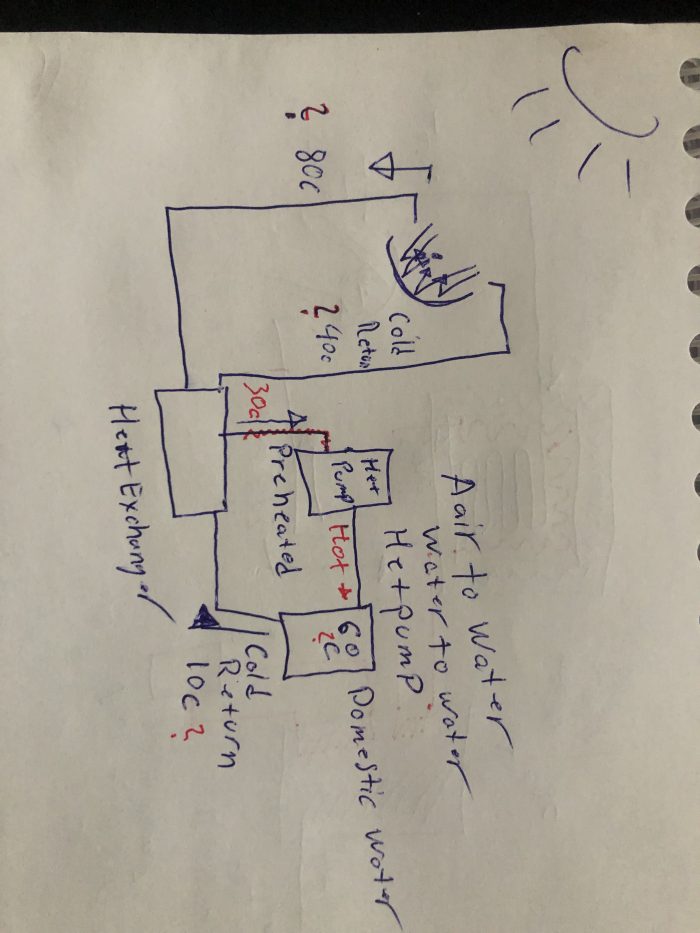 Aair to Water
water to water
Hetpump
Cold
Retun
?40c
Het
Pump
60
?C
Domestic water
Hot
? 80c
30c
Preheated
Cold
Return
10c ?
Heat Exchanger